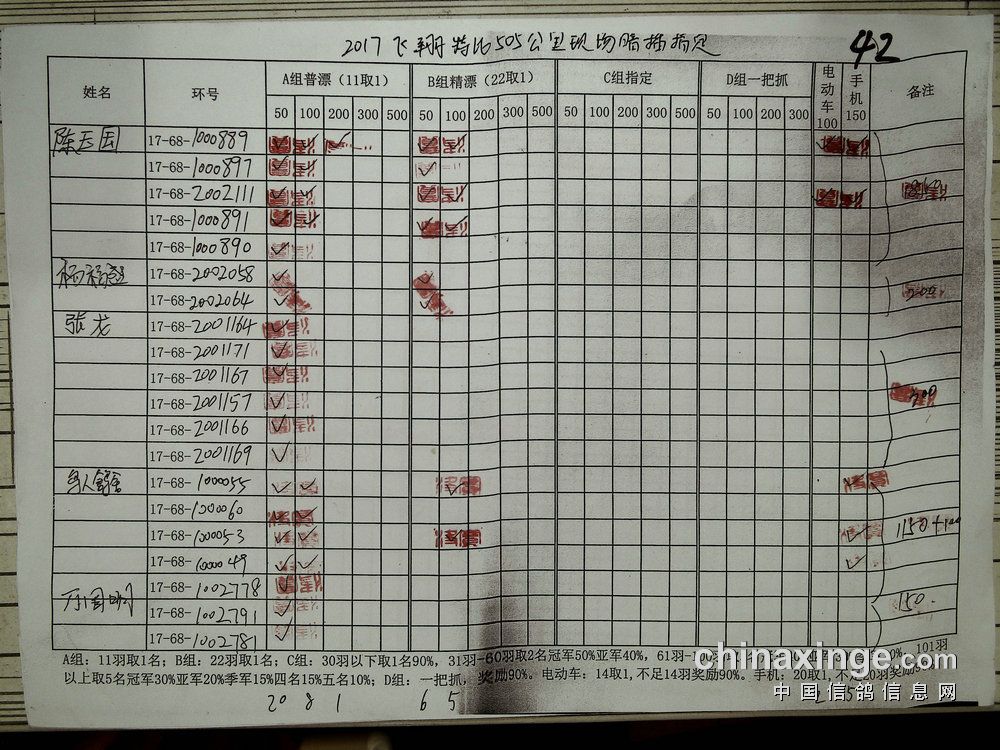 2017飞翔特比505公里现场暗插指定
42
姓名 环号 A组普漂（11取1） B组精漂（22取1） C组指定 D组一把抓 电动车100 手机150 备注
50 100 200 300 500 50 100 200 300 500 50 100 200 300 500 50 100 200 300
17-68-1000889
17-68-1000897
17-68-2002111
17-68-1000891
17-68-1000890
17-68-2002058
17-68-2002064
张龙 17-68-2001164
17-68-2001171
17-68-2001167
17-68-2001157
17-68-2001166
17-68-2001169
17-68-1000055
17-68-1000060
17-68-1000053 1150+100
17-68-1000049
17-68-1002778
17-68-1002791 150.
17-68-1002781
A组：11羽取1名；B组：22羽取1名；C组：30羽以下取1名90%，31羽-60羽取2名冠军50%亚军40%，61羽 101羽
以上取5名冠军30%亚军20%季军15%四名15%五名10%；D组：一把抓，奖励90%。电动车：14取1,不足14羽奖励90%。手机：20取1,不足20羽奖励90%
20 8 1 6 5 2 5
chinaxinge.com
中国信鸽信息网